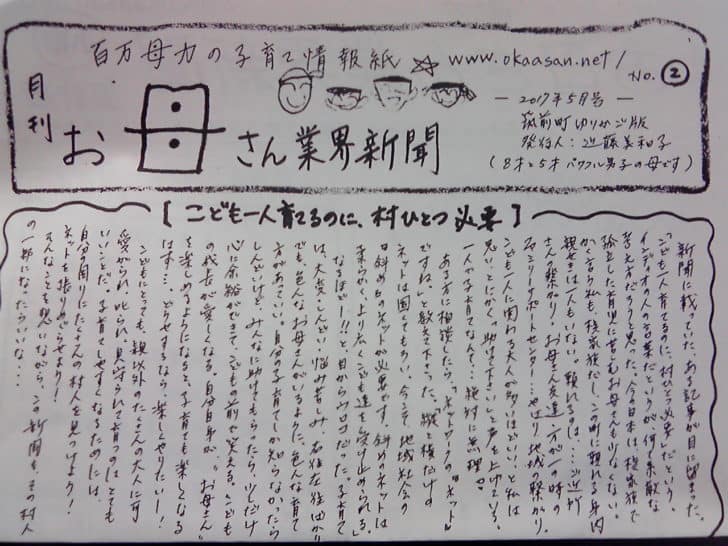 百万母力の子育て情報紙
www.okaasan.net/
No. ②
月刊
お母さん業界新聞
― 2017年5月号 ―
筑前町ゆりかご版
発行人：近藤美和子
(8才と5才パワフル男子の母です)
[こども一人育てるのに、村ひとつ必要]
新聞に載っていた、ある記事が目に留まった。
「こども一人育てるのに、村ひとつ必要」だという。
インディオの人の言葉だというが、何て素敵な
考え方だろうと思った。今の日本は、核家族で
孤立した育児に苦しむお母さんも少なくない。
かく言う私も、核家族だし、この町に頼れる身内
親せきは一人もいない。頼れるのは…ご近所
さんの繋がり、お母さん友達、一方が一時の
ファミリーサポートセンター…やはり、地域の繋がり。
こども一人に関わる大人が多いほどいい、と私は
思い、とにかく「助けて下さい」と声を上げている。
一人で子育てなんて…絶対に無理。
ある方に相談したら、「ネットワークの"ネット"
ですね。」と教えて下さった。「縦と横だけの
ネットは固くてもろい。今こそ、地域社会の
斜めのネットが必要です。斜めのネットは
柔らかく、より広くこどもを受け止められる。」
なるほどー!!と、目からウロコだった。子育て
は、大変、しんどい、悩み、苦しみ、右往左往ばかり
でも、色んなお母さんがいるように、色んな子育て
方があっていい。自分の子育てしか知らなかったら
しんどいけど、みんなに助けてもらったら、少しだけ
心に余裕ができて、こどもの前で笑える。こども
の成長が愛しくなる。自分自身が、"お母さん"
を楽しめるようになると、子育ても楽しくなる
はず…。どうせするなら、楽しくやりたいー！
こどもにとっても、親以外のたくさんの大人に可
愛がられ、叱られ、見守られて育つのはとても
いいことだ。子育てしやすくなるためには、
自分の周りにたくさんの村人を見つけよう！
ネットを張りめぐらせよう！
そんなことを思いながら、この新聞も、その村人
の一部になったらいいな…